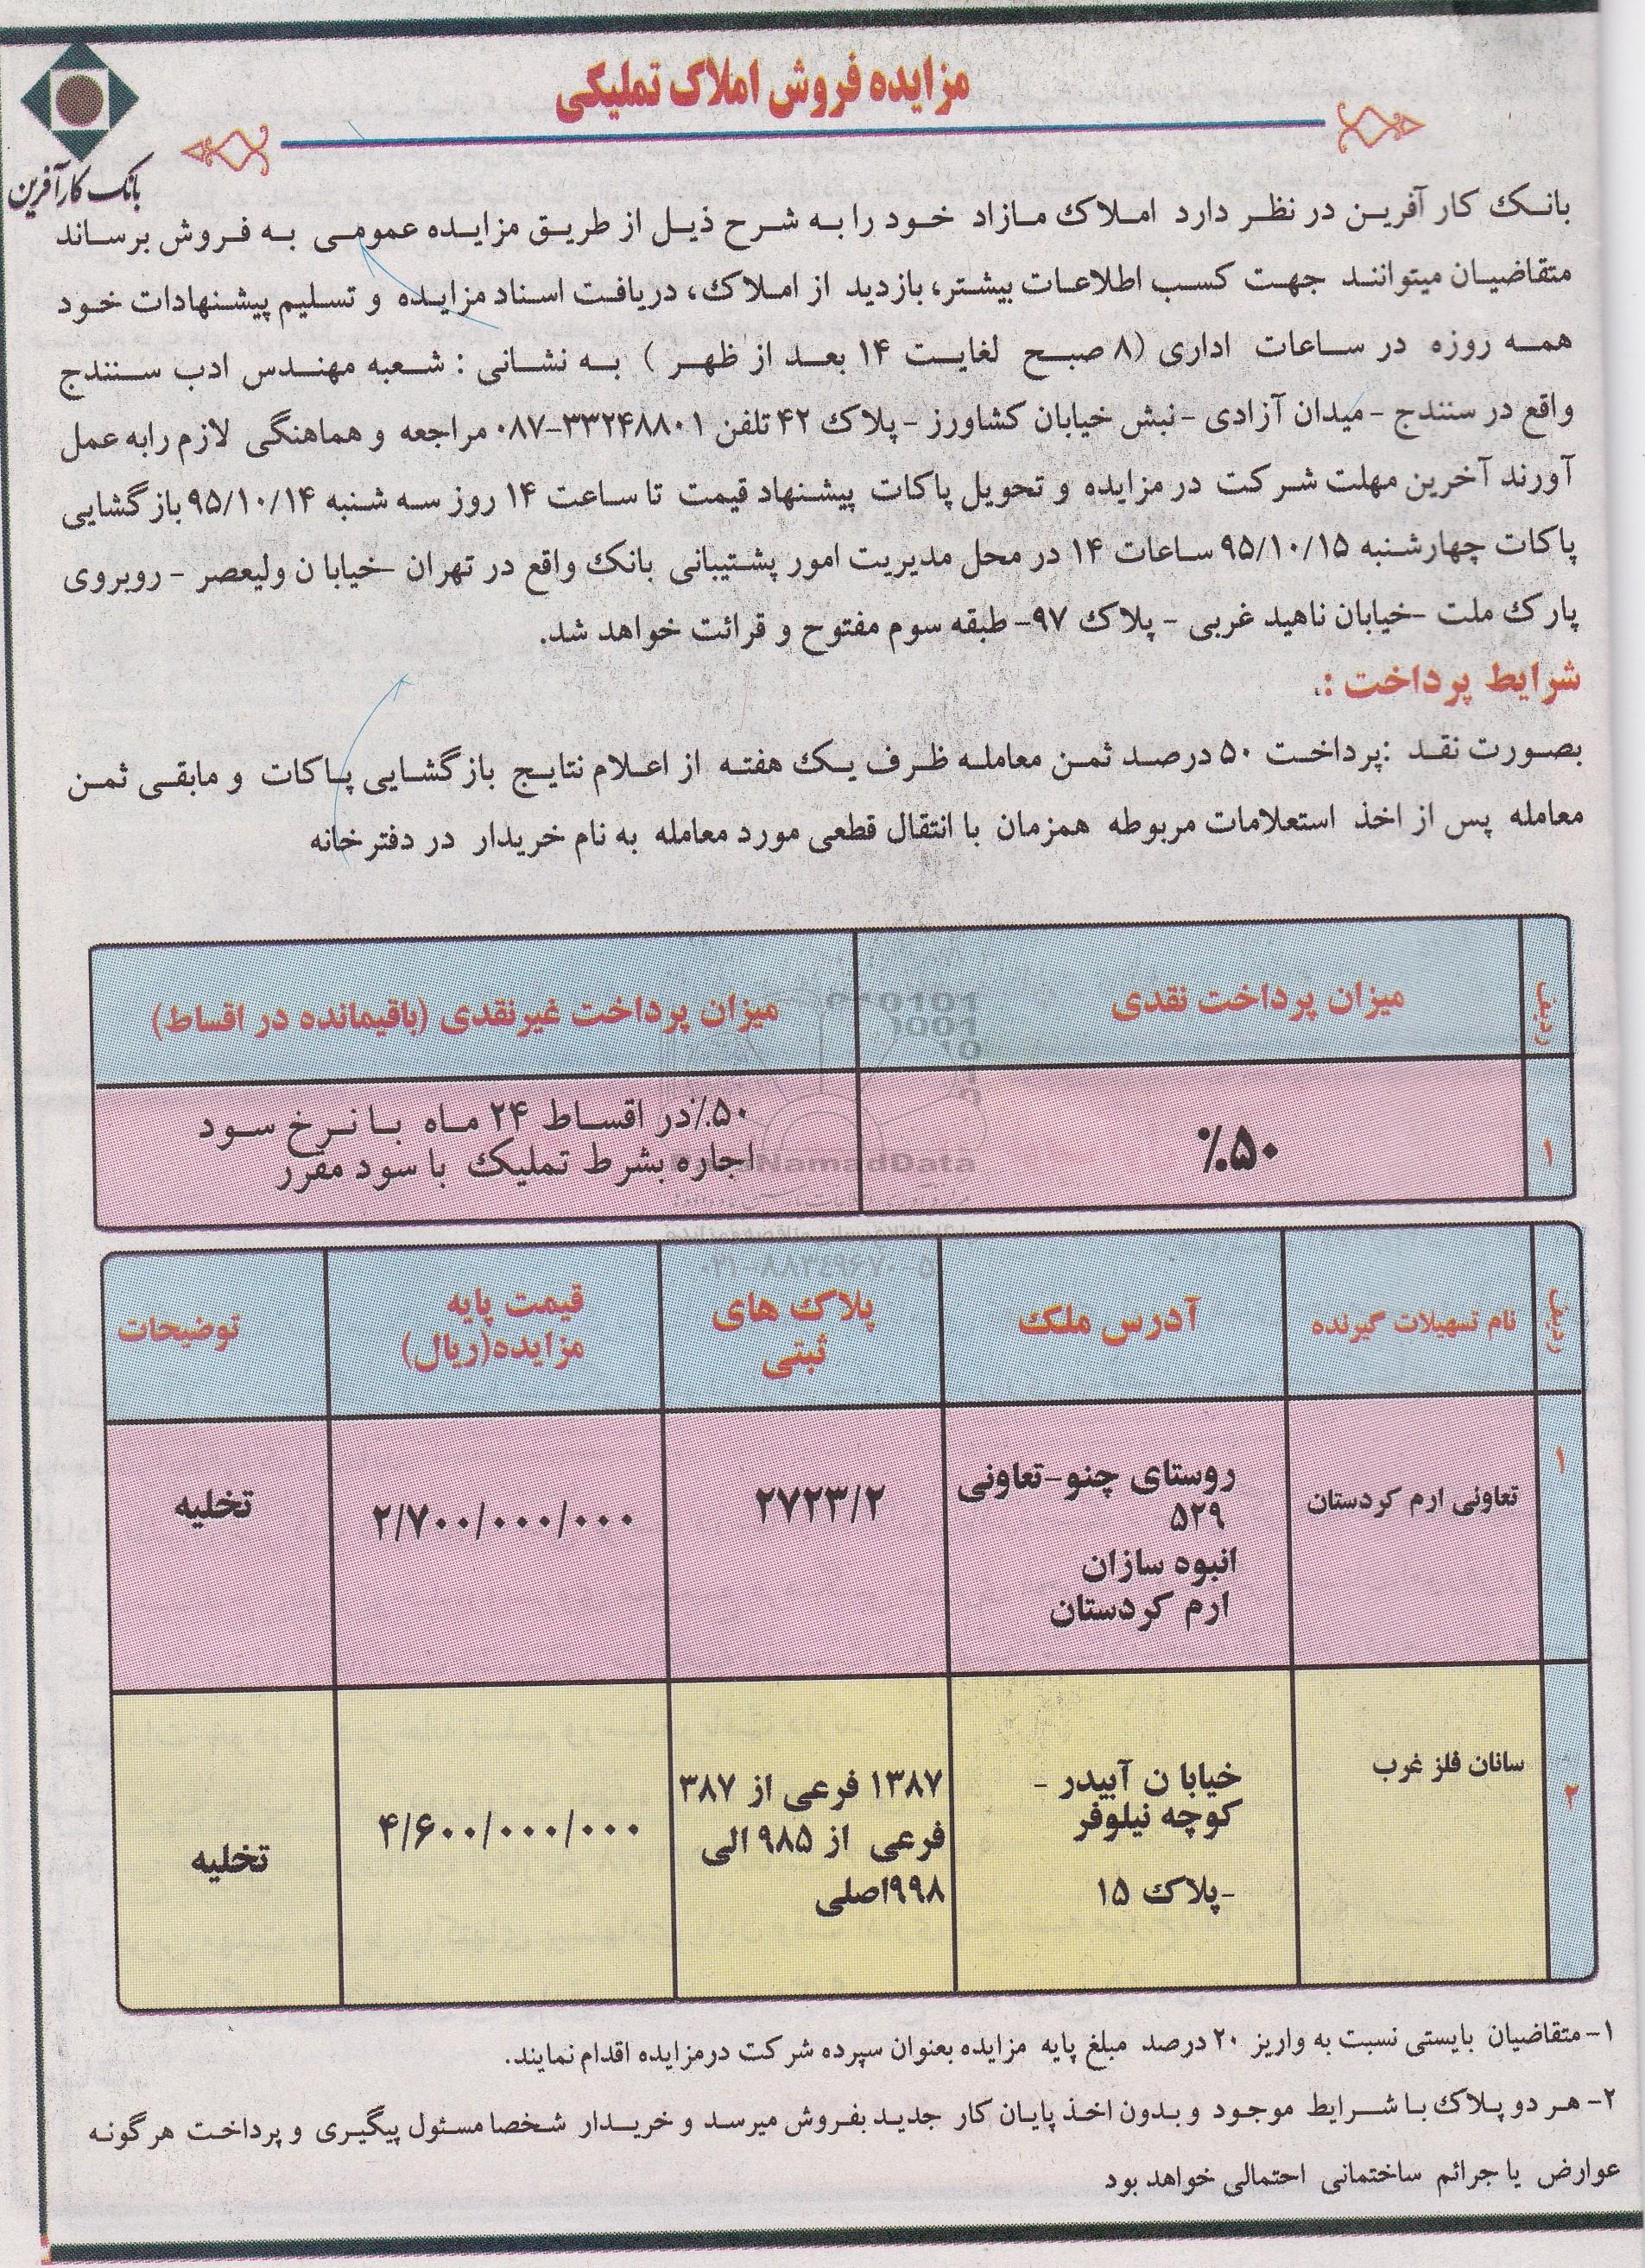 مزایده فروش املاک تملیکی
بانک کارآفرین
بانک کار آفرین در نظر دارد املاک مازاد خود را به شرح ذیل از طریق مزایده عمومی به فروش برساند
متقاضیان میتوانند جهت کسب اطلاعات بیشتر، بازدید از املاک، دریافت اسناد مزایده و تسلیم پیشنهادات خود
همه روزه در ساعات اداری (۸ صبح لغایت ۱۴ بعد از ظهر ) به نشانی : شعبه مهندس ادب سنندج
واقع در سنندج - میدان آزادی - نبش خیابان کشاورز - پلاک ۴۲ تلفن ۳۳۲۴۸۸۰۱-۰۸۷ مراجعه و هماهنگی لازم رابه عمل
آورند آخرین مهلت شرکت در مزایده و تحویل پاکات پیشنهاد قیمت تا ساعت ۱۴ روز سه شنبه ۹۵/۱۰/۱۴ بازگشایی
پاکات چهارشنبه ۹۵/۱۰/۱۵ ساعات ۱۴ در محل مدیریت امور پشتیبانی بانک واقع در تهران -خیابا ن ولیعصر - روبروی
پارک ملت -خیابان ناهید غربی - پلاک ۹۷- طبقه سوم مفتوح و قرائت خواهد شد.
شرایط پرداخت :
بصورت نقد :پرداخت ۵۰ درصد ثمن معامله ظرف یک هفته از اعلام نتایج بازگشایی پاکات و مابقی ثمن
معامله پس از اخذ استعلامات مربوطه همزمان با انتقال قطعی مورد معامله به نام خریدار در دفترخانه
ردیف
میزان پرداخت نقدی
میزان پرداخت غیرنقدی (باقیمانده در اقساط)
۱
۵۰٪
۵۰٪در اقساط ۲۴ ماه با نرخ سود
اجاره بشرط تملیک با سود مقرر
ParsNamadData
۰۲۱-۸۸۳۴۹۶۷۰-۵
ردیف
نام تسهیلات گیرنده
آدرس ملک
پلاک های
ثبتی
قیمت پایه
مزایده(ریال)
توضیحات
۱
تعاونی ارم کردستان
روستای چنو-تعاونی
۵۲۹
انبوه سازان
ارم کردستان
۲۷۲۳/۲
۲/۷۰۰/۰۰۰/۰۰۰
تخلیه
۲
سانان فلز غرب
خیابا ن آبیدر -
کوچه نیلوفر
-پلاک ۱۵
۱۳۸۷ فرعی از ۳۸۷
فرعی از ۹۸۵ الی
۹۹۸اصلی
۴/۶۰۰/۰۰۰/۰۰۰
تخلیه
۱- متقاضیان بایستی نسبت به واریز ۲۰ درصد مبلغ پایه مزایده بعنوان سپرده شرکت درمزایده اقدام نمایند.
۲- هر دو پلاک با شرایط موجود و بدون اخذ پایان کار جدید بفروش میرسد و خریدار شخصا مسئول پیگیری و پرداخت هرگونه
عوارض یا جرائم ساختمانی احتمالی خواهد بود